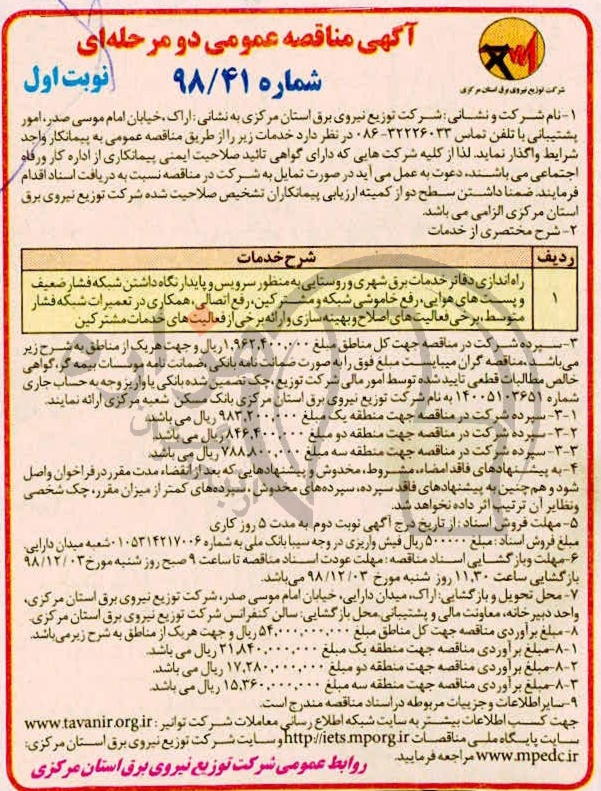 آگهی مناقصه عمومی دو مرحله‌ای
شماره ۹۸/۴۱
نوبت اول
شرکت توزیع نیروی برق استان مرکزی
۱-نام شرکت و نشانی: شرکت توزیع نیروی برق استان مرکزی به نشانی: اراک، خیابان امام موسی صدر، امور
پشتیبانی با تلفن تماس ۳۲۲۲۶۰۳۳-۰۸۶ در نظر دارد خدمات زیر را از طریق مناقصه عمومی به پیمانکار واجد
شرایط واگذار نماید. لذا از کلیه شرکت هایی که دارای گواهی تائید صلاحیت ایمنی پیمانکاری از اداره کار ورفاه
اجتماعی می باشند، دعوت به عمل می آید در صورت تمایل به شرکت در مناقصه نسبت به دریافت اسناد اقدام
فرمایند. ضمنا داشتن سطح دو از کمیته ارزیابی پیمانکاران تشخیص صلاحیت شده شرکت توزیع نیروی برق
استان مرکزی الزامی می باشد.
۲- شرح مختصری از خدمات
ردیف شرح خدمات
۱ راه اندازی دفاتر خدمات برق شهری و روستایی به منظور سرویس و پایدار نگاه داشتن شبکه فشار ضعیف
و پست های هوایی، رفع خاموشی شبکه و مشترکین، رفع اتصالی، همکاری در تعمیرات شبکه فشار
متوسط، برخی فعالیت های اصلاح و بهینه سازی و ارائه برخی از فعالیت های خدمات مشترکین
۳-سپرده شرکت در مناقصه جهت کل مناطق مبلغ ۱,۹۶۲,۴۰۰,۰۰۰ ریال و جهت هر یک از مناطق به شرح زیر
می‌باشد. مناقصه گران میبایست مبلغ فوق را به صورت ضمانت نامه بانکی، ضمانت نامه موسسات بیمه گر، گواهی
خالص مطالبات قطعی تایید شده توسط امور مالی شرکت توزیع، چک تضمین شده بانکی یا واریز وجه به حساب جاری
شماره ۱۴۰۰۵۱۰۳۶۵۱ به نام شرکت توزیع نیروی برق استان مرکزی بانک مسکن شعبه مرکزی ارائه نمایند.
۳-۱- سپرده شرکت در مناقصه جهت منطقه یک مبلغ ۹۸۳,۲۰۰,۰۰۰ ریال می باشد.
۳-۲- سپرده شرکت در مناقصه جهت منطقه دو مبلغ ۸۴۶,۴۰۰,۰۰۰ ریال می باشد.
۳-۳- سپرده شرکت در مناقصه جهت منطقه سه مبلغ ۷۸۸,۸۰۰,۰۰۰ ریال می باشد.
۴- به پیشنهادهای فاقد امضاء، مشروط، مخدوش و پیشنهادهایی که بعد از انقضاء مدت مقرر در فراخوان واصل
شود و هم چنین به پیشنهادهای فاقد سپرده، سپرده‌های مخدوش، سپرده‌های کمتر از میزان مقرر، چک شخصی
ونظایر آن ترتیب اثر داده نخواهد شد.
۵- مهلت فروش اسناد: از تاریخ درج آگهی نوبت دوم به مدت ۵ روز کاری
مبلغ فروش اسناد: مبلغ ۵۰۰۰۰۰ ریال فیش واریزی در وجه سیبا بانک ملی به شماره ۰۱۰۵۳۱۴۲۱۷۰۰۶ شعبه میدان دارایی.
۶-مهلت وبازگشایی اسناد مناقصه: مهلت عودت اسناد مناقصه تا ساعت ۹ صبح روز شنبه مورخ ۹۸/۱۲/۰۳
بازگشایی ساعت ۱۱،۳۰ روز شنبه مورخ ۹۸/۱۲/۰۳ می‌باشد.
۷- محل تحویل و بازگشایی: اراک، میدان دارایی، خیابان امام موسی صدر، شرکت توزیع نیروی برق استان مرکزی،
واحد دبیرخانه، معاونت مالی و پشتیبانی، محل بازگشایی: سالن کنفرانس شرکت توزیع نیروی برق استان مرکزی.
۸-مبلغ برآوردی مناقصه جهت کل مناطق مبلغ ۵۴,۰۰۰,۰۰۰,۰۰۰ ریال و جهت هر یک از مناطق به شرح زیر می‌باشد.
۸-۱-مبلغ برآوردی مناقصه جهت منطقه یک مبلغ ۲۱,۸۴۰,۰۰۰,۰۰۰ ریال می باشد.
۸-۲-مبلغ برآوردی مناقصه جهت منطقه دو مبلغ ۱۷,۲۸۰,۰۰۰,۰۰۰ ریال می باشد.
۸-۳-مبلغ برآوردی مناقصه جهت منطقه سه مبلغ ۱۵,۳۶۰,۰۰۰,۰۰۰ ریال می باشد.
۹-سایر اطلاعات و جزییات مربوطه در اسناد مناقصه مندرج است.
جهت کسب اطلاعات بیشتر به سایت شبکه اطلاع رسانی معاملات شرکت توانیر: www.tavanir.org.ir
سایت پایگاه ملی مناقصات http://iets.mporg.ir و سایت شرکت توزیع نیروی برق استان مرکزی:
www.mpedc.ir مراجعه فرمایید.
روابط عمومی شرکت توزیع نیروی برق استان مرکزی